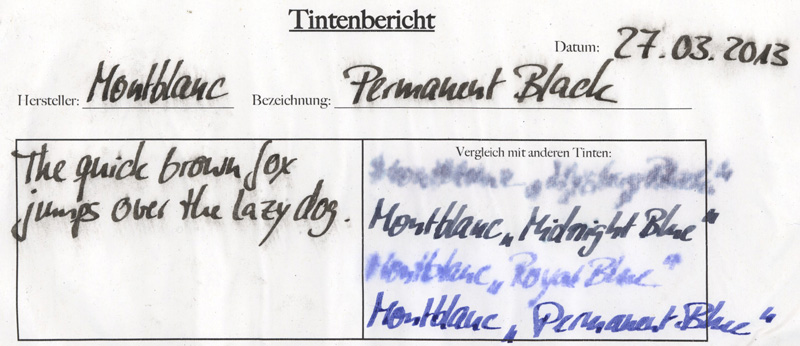 Tintenbericht
Datum: 27.03.2013
Hersteller: Montblanc Bezeichnung: Permanent Black
The quick brown fox
jumps over the lazy dog.
Vergleich mit anderen Tinten:
Montblanc „Mystery Black“
Montblanc „Midnight Blue“
Montblanc „Royal Blue“
Montblanc „Permanent Blue“